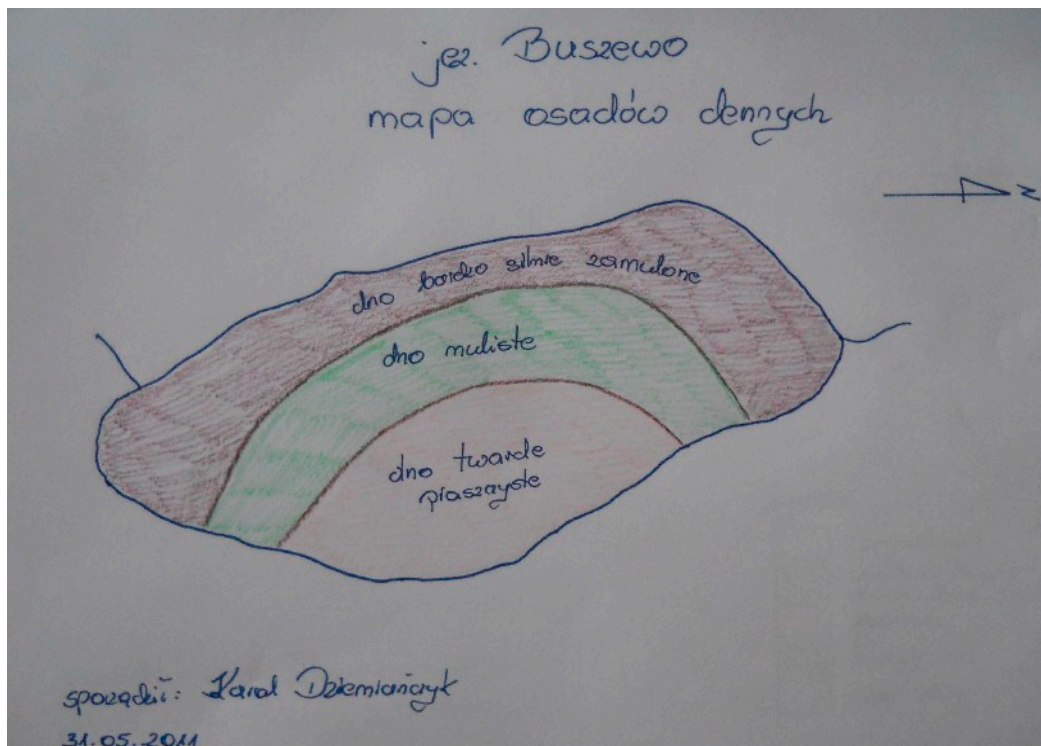 jez. Buszewo
mapa osadów dennych
N
dno bardzo silnie zamulone
dno muliste
dno twarde
piaszczyste
sporządził: Karol Dziemiańczyk
31.05.2011